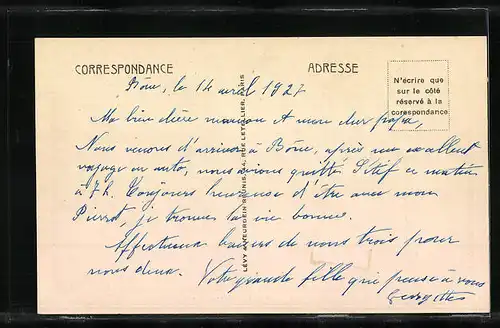 CORRESPONDANCE
ADRESSE
N'écrire que
sur le côté
réservé à la
corespondance
LÉVY & NEURDEIN RÉUNIS, 44, RUE LETELLIER, PARIS
Bône, le 14 avril 1927
Ma bien chère maman et mon cher papa,
Nous venons d'arriver à Bône, après un excellent
voyage en auto, nous avions quitté Sétif ce matin
à 7h. Toujours heureuse d'être avec mon
Pierrot, je trouve la vie bonne.
Affectueux baisers de nous trois pour
vous deux. Votre grande fille qui pense à vous
Georgette